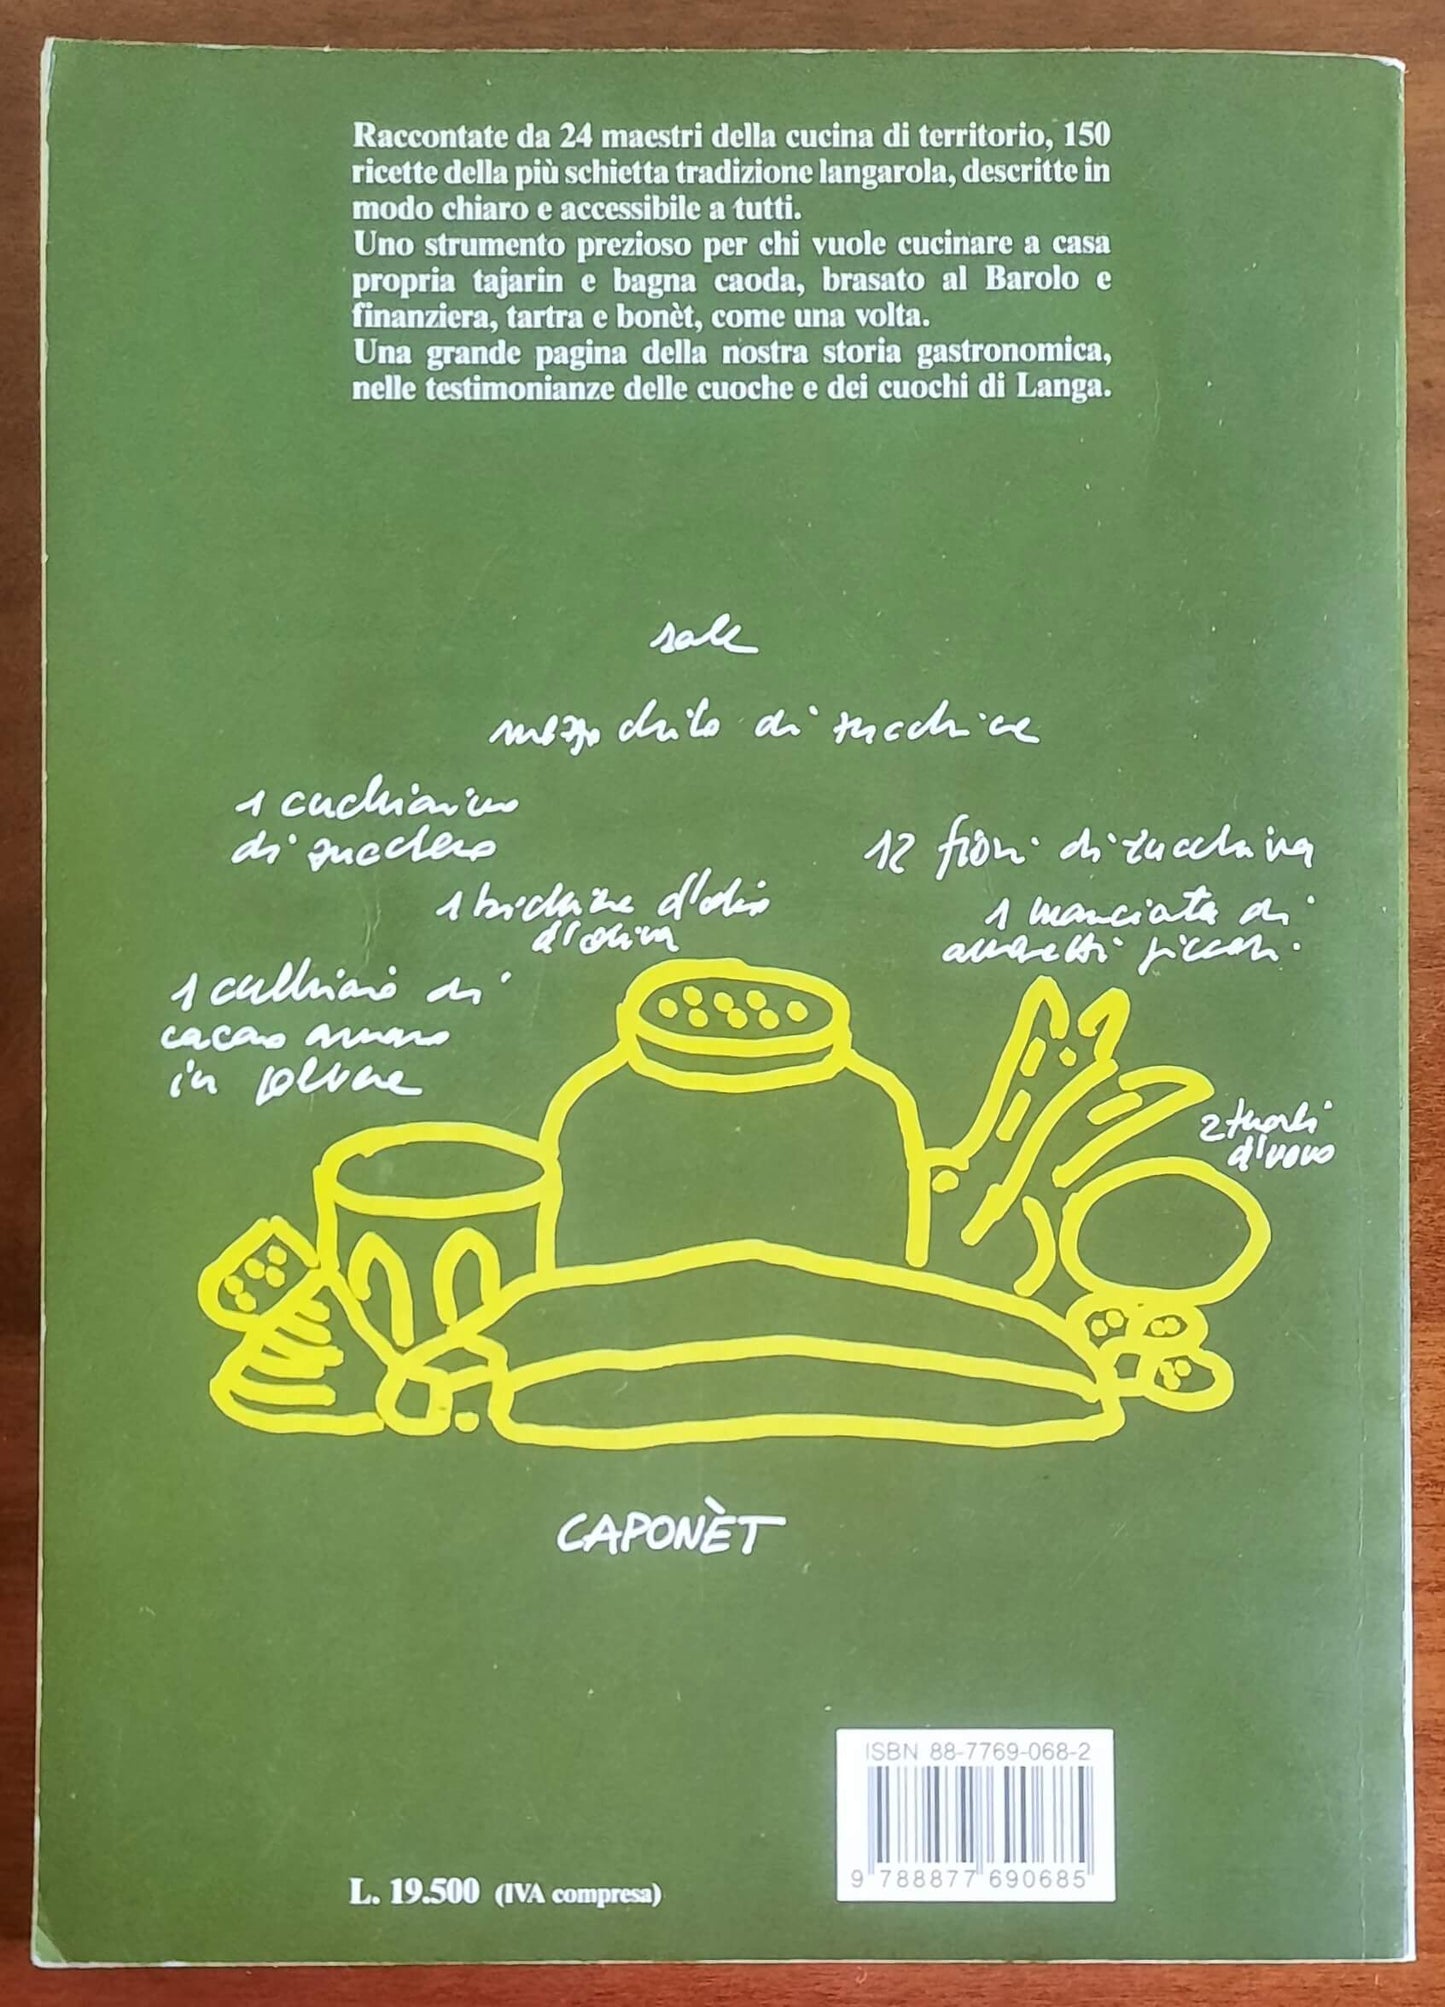 Raccontate da 24 maestri della cucina di territorio, 150
ricette della più schietta tradizione langarola, descritte in
modo chiaro e accessibile a tutti.
Uno strumento prezioso per chi vuole cucinare a casa
propria tajarin e bagna caoda, brasato al Barolo e
finanziera, tartra e bonèt, come una volta.
Una grande pagina della nostra storia gastronomica,
nelle testimonianze delle cuoche e dei cuochi di Langa.
sale
mezzo chilo di zucchine
1 cucchiaino
di zucchero
12 fiori di zucchina
1 bicchiere d'olio
d'oliva
1 manciata di
amaretti piccoli
1 cucchiaio di
cacao amaro
in polvere
2 tuorli
d'uovo
CAPONÈT
ISBN 88-7769-068-2
9 788877 690685
L. 19.500 (IVA compresa)